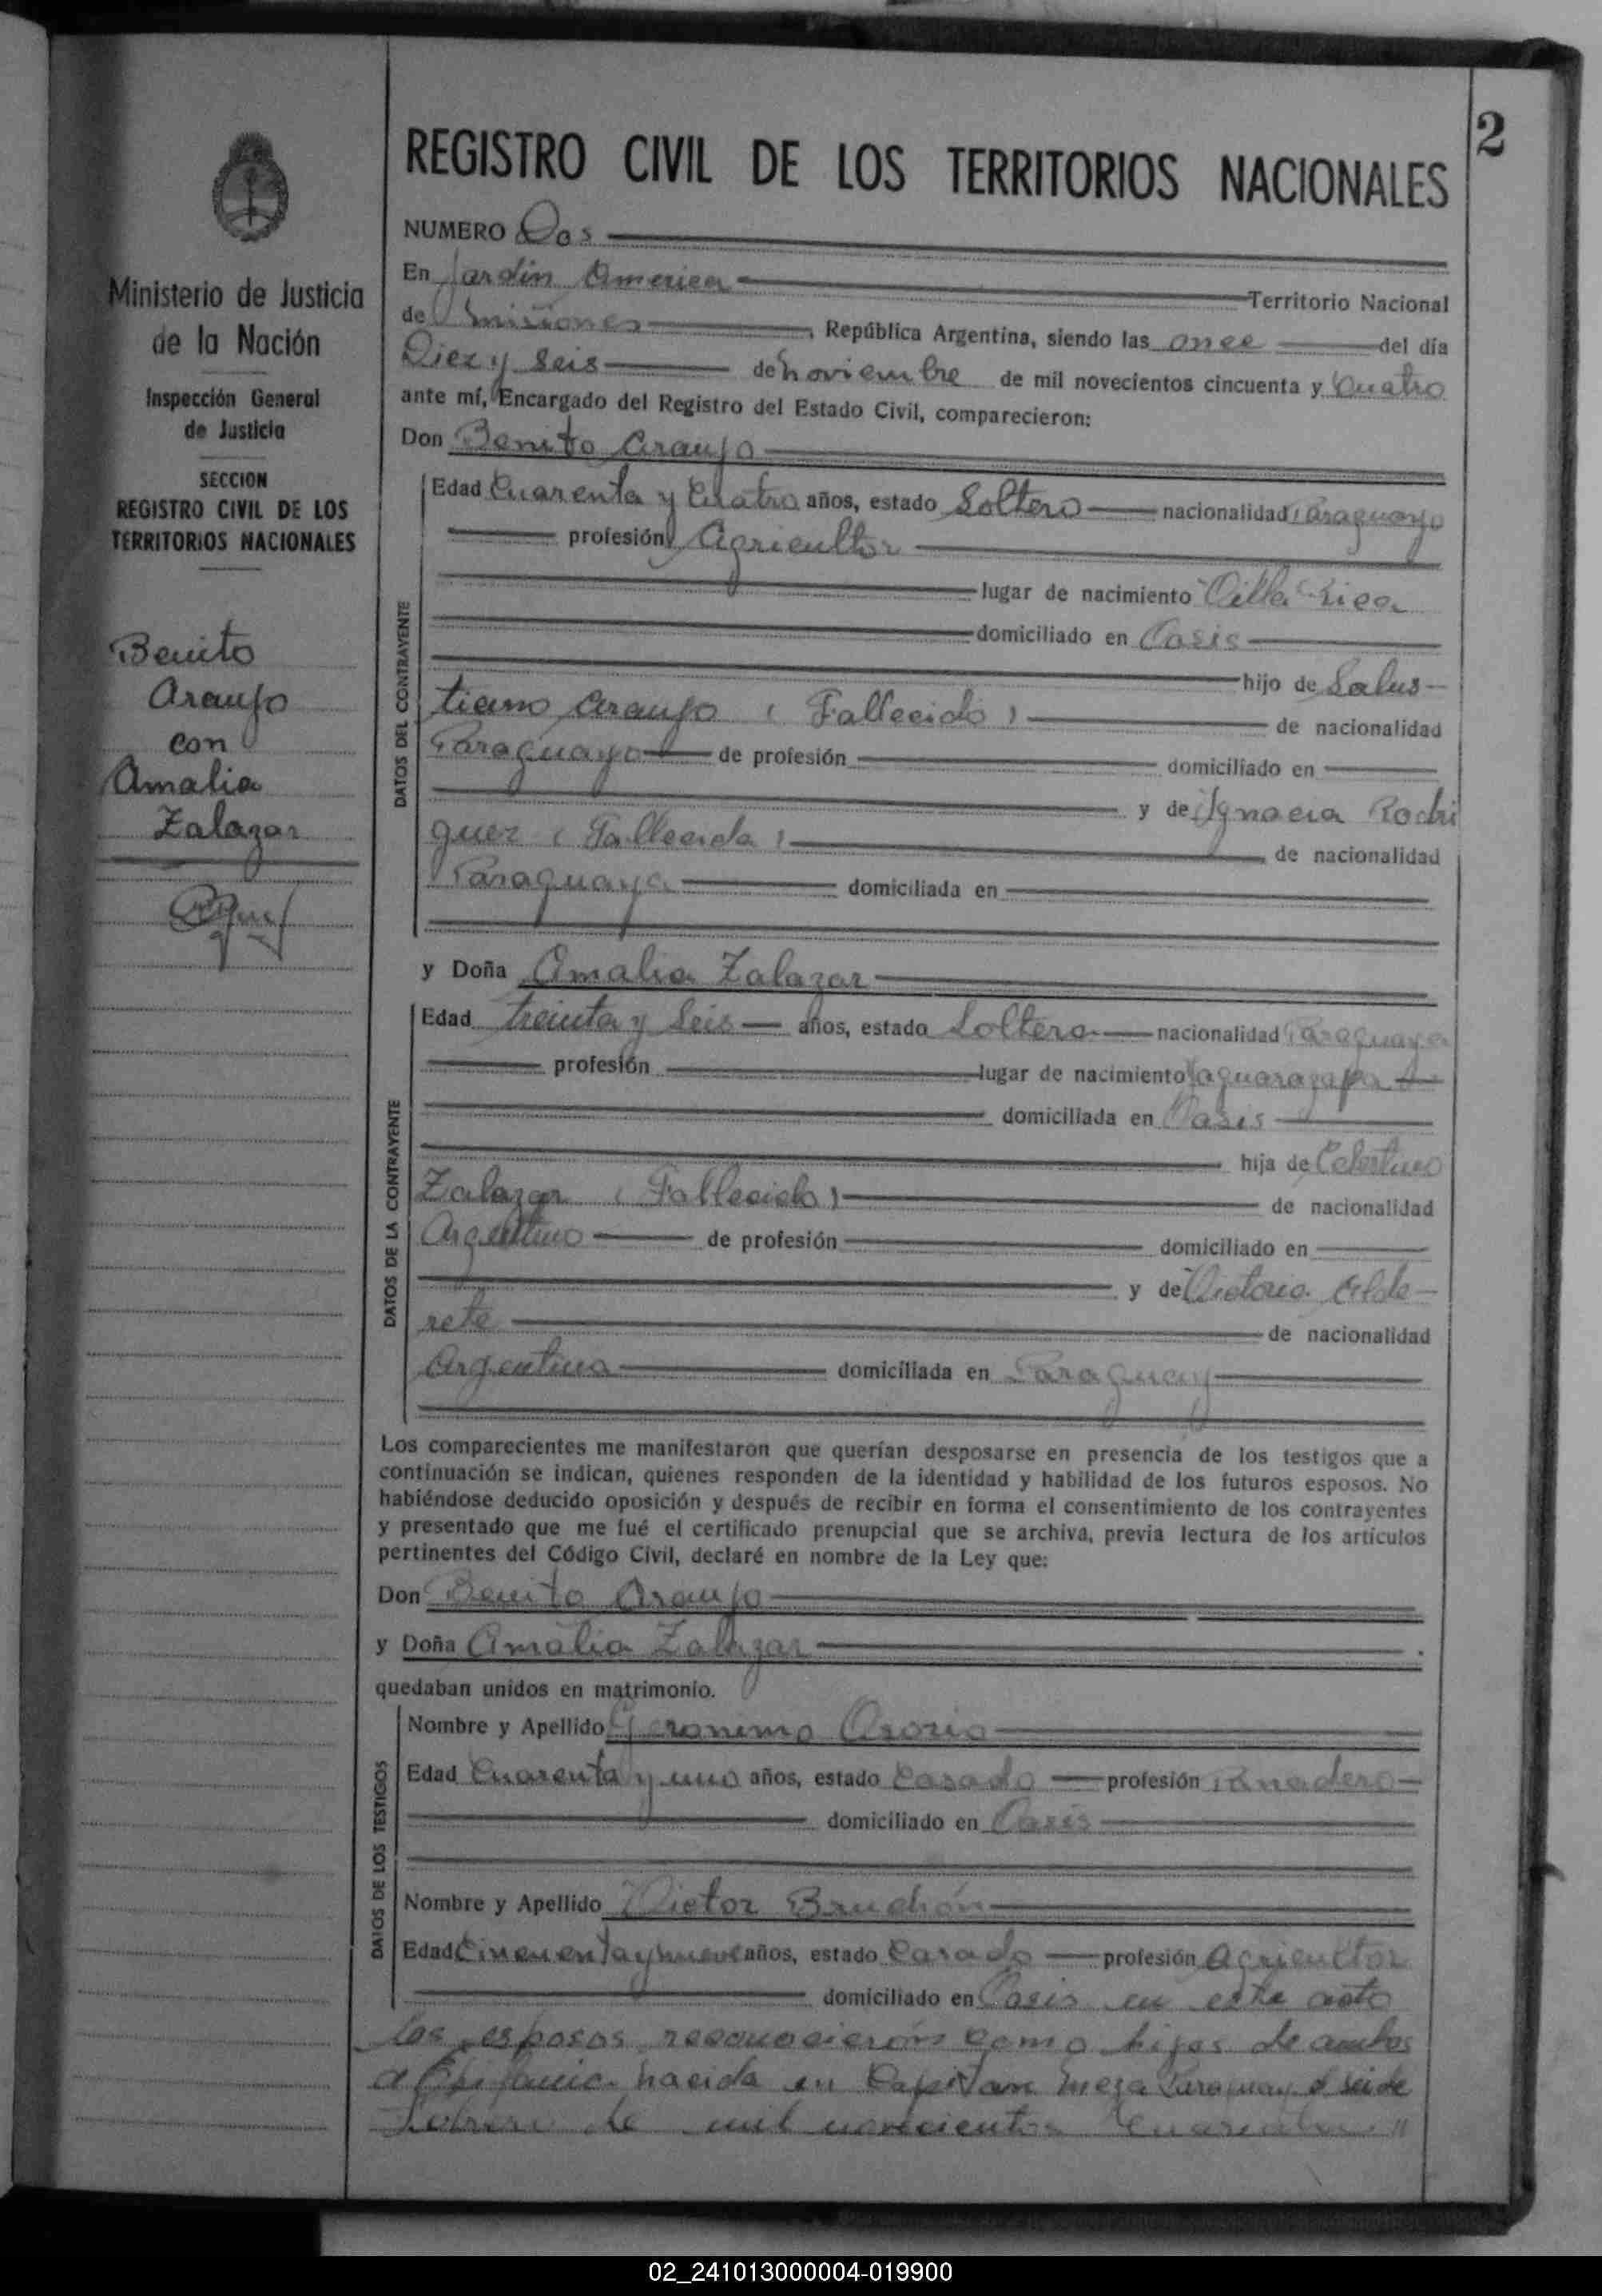 2
REGISTRO CIVIL DE LOS TERRITORIOS NACIONALES
Ministerio de Justicia
de la Nación
Inspección General
de Justicia
SECCION
REGISTRO CIVIL DE LOS
TERRITORIOS NACIONALES
Benito
Araujo
con
Amalia
Zalazar
NUMERO Dos
En Jardin America Territorio Nacional
de Misiones, República Argentina, siendo las once del día
Diez y seis de Noviembre de mil novecientos cincuenta y Cuatro
ante mí, Encargado del Registro del Estado Civil, comparecieron:
Don Benito Araujo
DATOS DEL CONTRAYENTE
Edad Cuarenta y Cuatro años, estado Soltero nacionalidad Paraguayo
profesión Agricultor
lugar de nacimiento Villa Rica
domiciliado en Oasis
hijo de Salus-
tiano Araujo (Fallecido) de nacionalidad
Paraguayo de profesión domiciliado en
y de Ygnacia Rodri
guez (Fallecida) de nacionalidad
Paraguaya domiciliada en
y Doña Amalia Zalazar
DATOS DE LA CONTRAYENTE
Edad treinta y Seis años, estado Soltera nacionalidad Paraguaya
profesión lugar de nacimiento Yaguarazapa
domiciliada en Oasis
hija de Celestino
Zalazar (Fallecido) de nacionalidad
Argentino de profesión domiciliado en
y de Victoria Alde-
rete de nacionalidad
Argentina domiciliada en Paraguay
Los comparecientes me manifestaron que querían desposarse en presencia de los testigos que a
continuación se indican, quienes responden de la identidad y habilidad de los futuros esposos. No
habiéndose deducido oposición y después de recibir en forma el consentimiento de los contrayentes
y presentado que me fué el certificado prenupcial que se archiva, previa lectura de los artículos
pertinentes del Código Civil, declaré en nombre de la Ley que:
Don Benito Araujo
y Doña Amalia Zalazar.
quedaban unidos en matrimonio.
DATOS DE LOS TESTIGOS
Nombre y Apellido Geronimo Osorio
Edad Cuarenta y uno años, estado Casado profesión Panadero
domiciliado en Oasis
Nombre y Apellido Victor Bruchón
Edad Cincuenta y nueve años, estado Casado profesión Agricultor
domiciliado en Oasis en este acto
los esposos reconocieron como hijos de ambos
a Epifania nacida en Capitan Meza Paraguay el seis de
Febrero de mil novecientos cuarenta
02_241013000004-019900